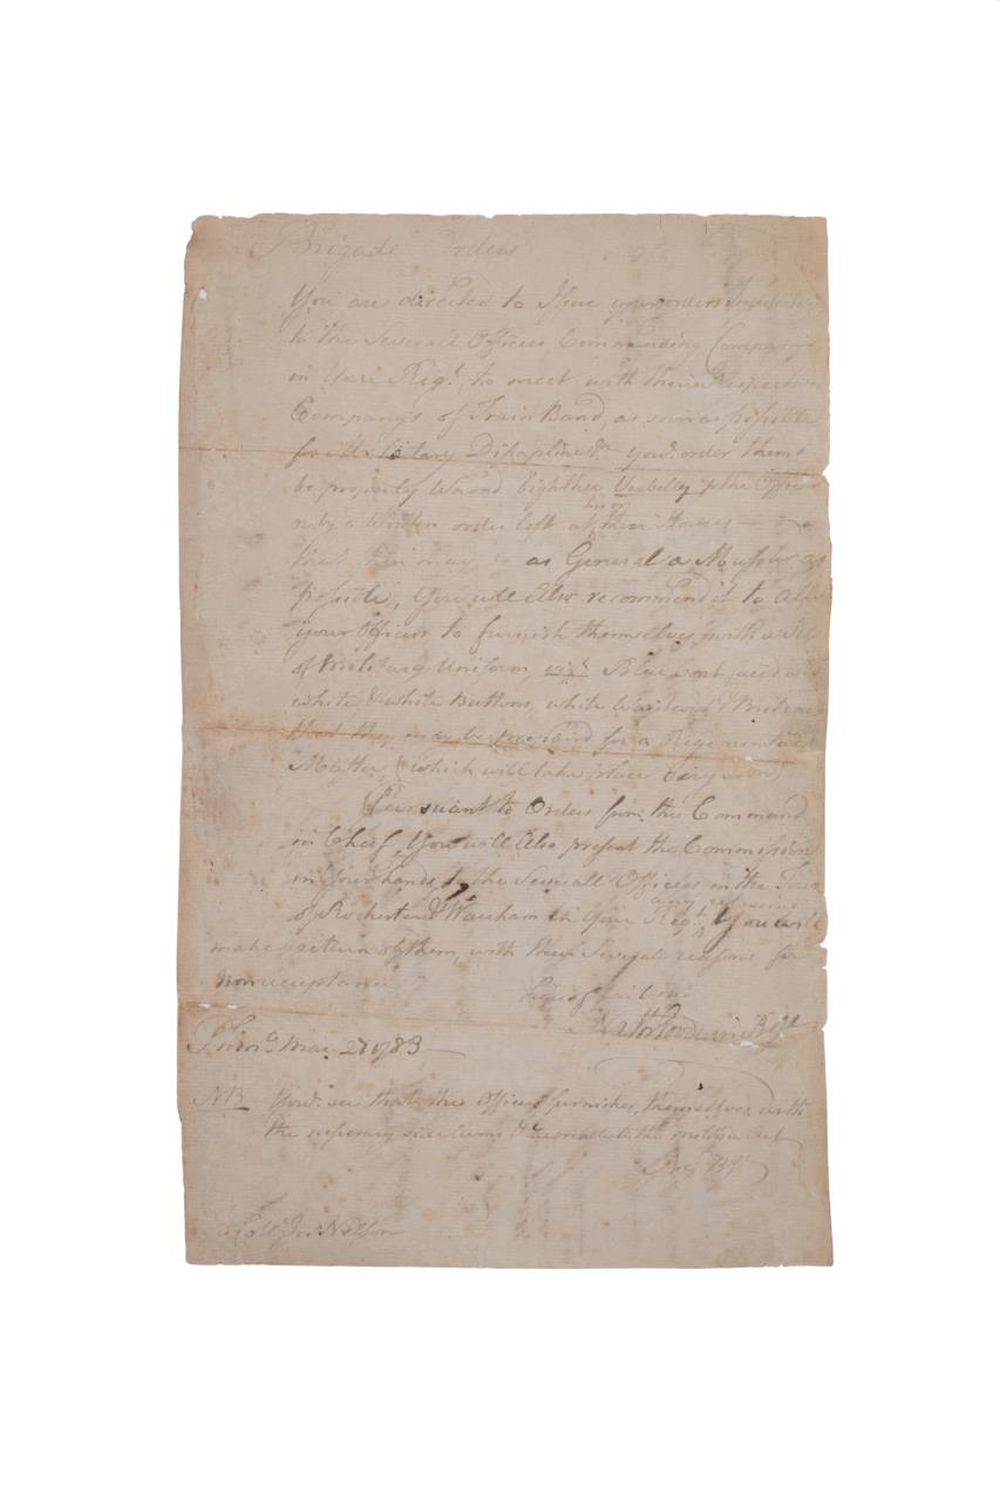 Brigade Orders
You are directed to Issue your orders
to the Severall Officers Commanding Companys
in Your Regt, to meet with their Respective
Companys of Train Band, as soon as possible
for Military Disapline &c youl order them
be properly Warnd Eighther Verbelly p the Officer
or by a Writen order left at their Houses
in or
that their may as General a Muster as
possible, You will Also recommend it to All
your Officers to furnish themselves with a
of Military Uniform, vizt Blue Coat faced with
white & white Buttons, white Waistcoat &
that they may be prepared for a Regemental
Muster, (which will take place very soon)
Pursuant to Orders from the Command
in Cheif, You will Also present the Commissions
in Your hands, to the Severall Officers in the Town
any refuseing
of Rochester & Wareham in Your Regt, You will
make return of them, with their Severale reasons for
non acceptance
Nath Goodwin
Mar 27 1783
NB Youl see that the Officers furnishes themselves with
the nessesary side Arms & to the militia Act

Coll Jno Nelson